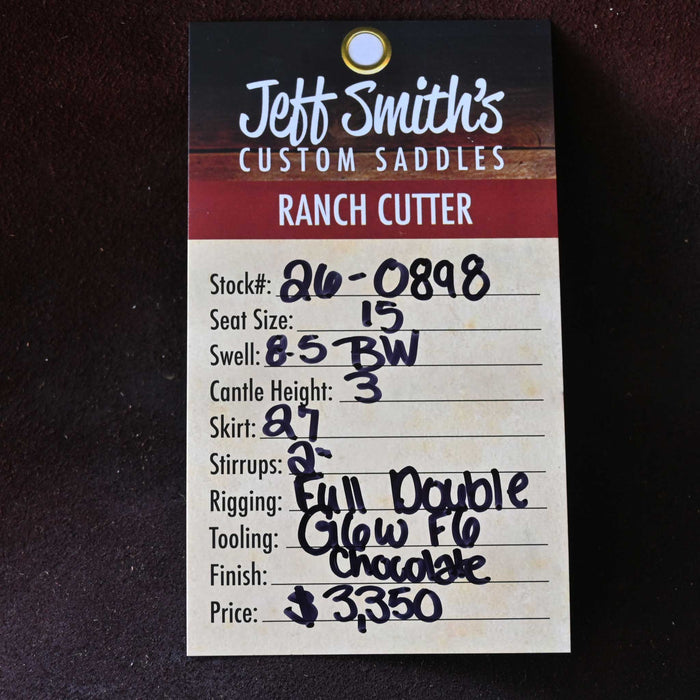 Jeff Smith's
CUSTOM SADDLES
RANCH CUTTER
Stock#: 26-0898
Seat Size: 15
Swell: 8.5 BW
Cantle Height: 3
Skirt: 27
Stirrups: 2-
Rigging: Full Double
Tooling: G6W F6
Finish: Chocolate
Price: $3,350